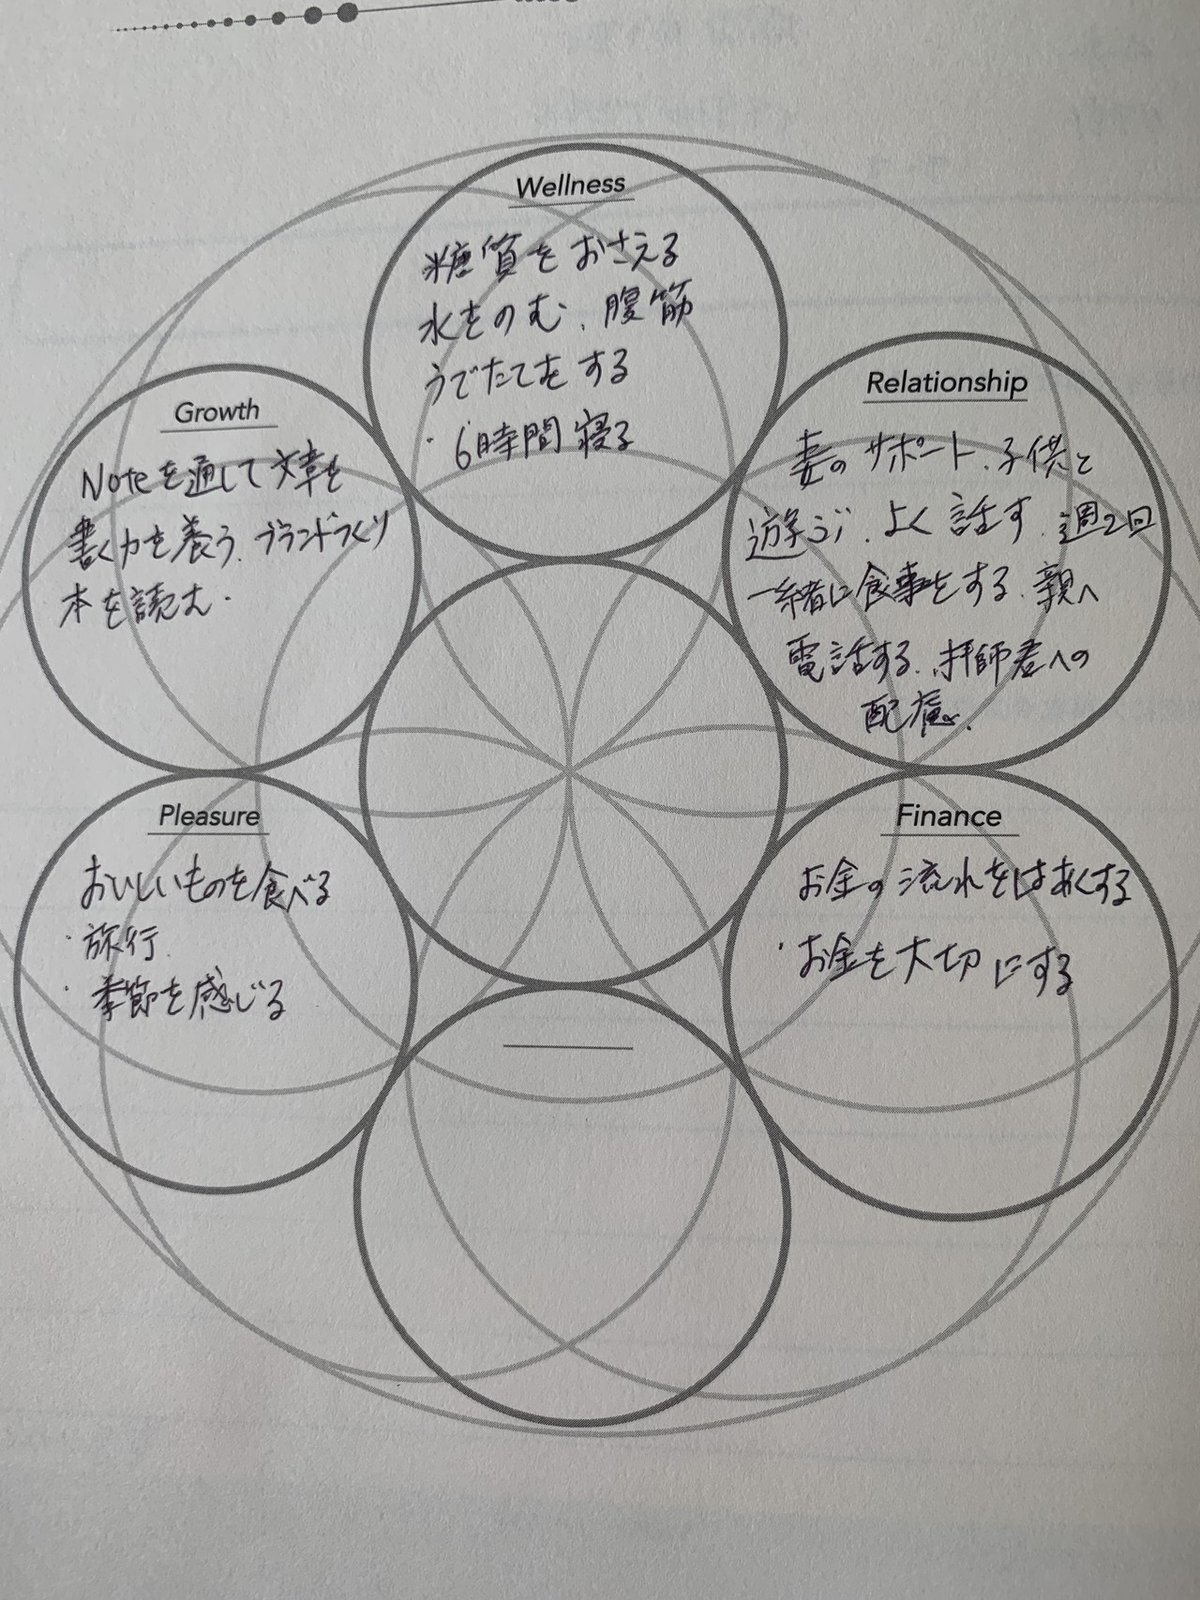 Wellness
糖質をおさえる
水をのむ、腹筋
うでたてをする
・6時間寝る
Growth
Noteを通して文章を
書く力を養う、ブランドづくり
本を読む.
Relationship
妻のサポート、子供と
遊ぶ、よく話す、週2回
一緒に食事をする、親へ
電話する、師君への
配慮.
Pleasure
おいしいものを食べる
・旅行
・季節を感じる
Finance
お金の流れをはあくする
・お金を大切にする